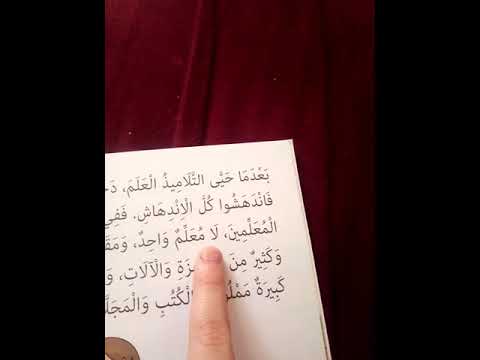 بَعْدَمَا حَيَّى التَّلَامِيذُ الْعَلَمَ،
فَانْدَهَشُوا كُلَّ الْاِنْدِهَاشِ. فَفِي
الْمُعَلِّمِينَ، لَا مُعَلِّمٌ وَاحِدٌ،
وَكَثِيرٌ مِنَ وَالْآلَاتِ،
كَبِيرَةٌ الْكُتُبِ